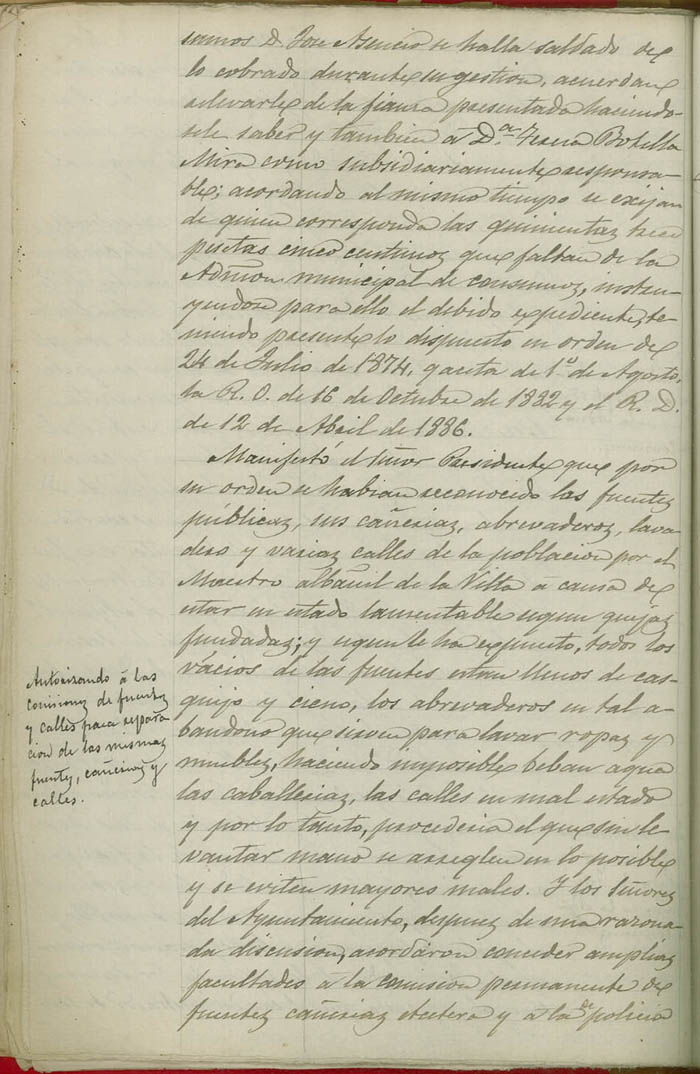 sumos D. Jose Asencio se halla saldado de
lo cobrado durante su gestion, acuerdan
relevarle de la fianza presentada haciendo-
sele saber y tambien á D.ª Teresa Botella
Mira como subsidiariamente responsa-
ble; acordando al mismo tiempo se exijan
de quien corresponda las quinientas trece
pesetas cinco centimos que faltan de la
Admon municipal de consumos, instru-
yendose para ello el debido expediente, te-
niendo presente lo dispuesto en orden de
24 de Julio de 1874, gaceta de 1.º de Agosto,
la R. O. de 16 de Octubre de 1882 y el R. D.
de 12 de Abril de 1886.
Manifestó el Señor Presidente que por
su orden se habian reconocido las fuentes
públicas, sus cañerias, abrevaderos, lava-
dero y varias calles de la poblacion por el
Maestro albañil de la Villa á causa de
estar en estado lamentable segun quejas
fundadas; y segun le ha expuesto, todos los
vácios de las fuentes estan llenos de cas-
quijo y cieno, los abrevaderos en tal a-
bandono que sirven para lavar ropas y
muebles, haciendo imposible beban agua
las caballerias, las calles en mal estado
y por lo tanto, procederia el que sin le
vantar mano se arreglen en lo posible
y se eviten mayores males. Y los Señores
del Ayuntamiento, despues de una razona-
da discusion, acordaron conceder amplias
facultades á la comision permanente de
fuentes cañerias etcetera y a la de policia
Autorizando á las
comisiones de fuentes
y calles para repara
cion de las mismas
fuentes, cañerias y
calles.